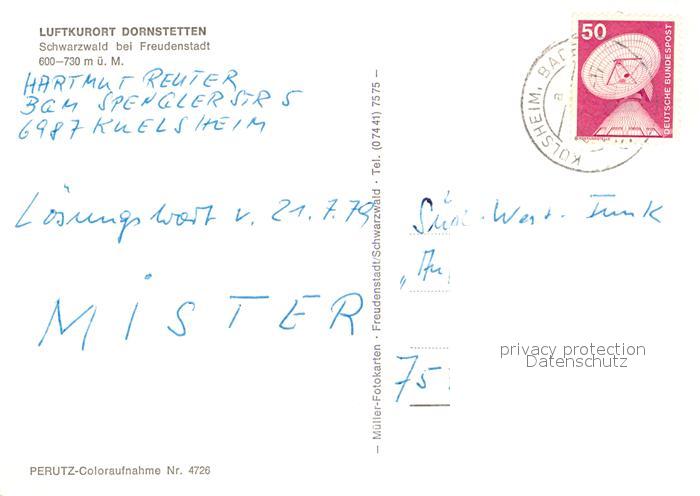 LUFTKURORT DORNSTETTEN
Schwarzwald bei Freudenstadt
600–730 m ü. M.
HARTMUT REUTER
BGM SPENGLERSTR 5
6987 KUELSHEIM
Lösungswort v. 21.7.79
MISTER
PERUTZ-Coloraufnahme Nr. 4726
– Müller-Fotokarten · Freudenstadt/Schwarzwald · Tel. (07441) 7575 –
50
DEUTSCHE BUNDESPOST
KÜLSHEIM, BAD
a
Süd-West-Funk
75
privacy protection
Datenschutz